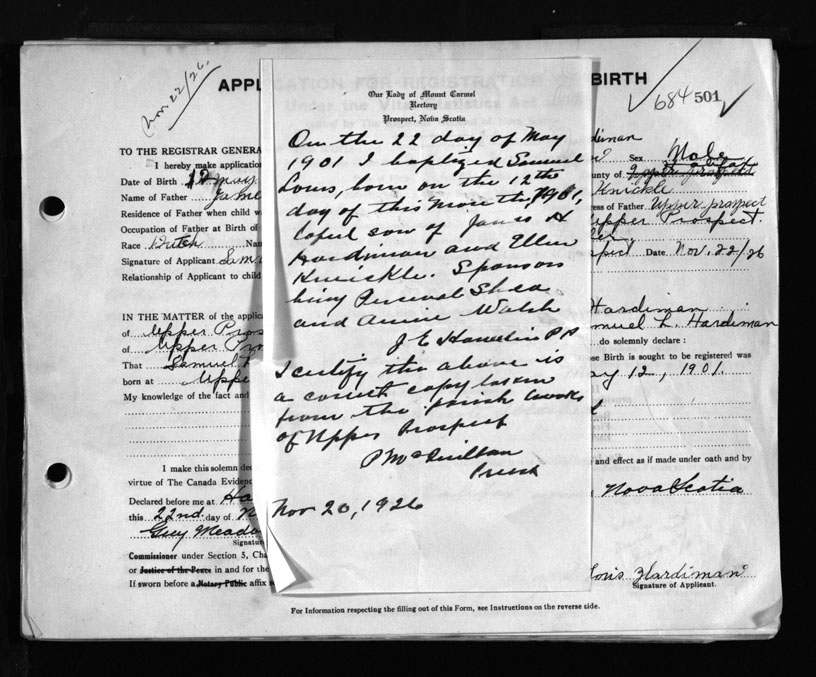 Nov 22/26.
APPLICATION FOR REGISTRATION BIRTH
684 501
Under the Vital Statistics Act
TO THE REGISTRAR GENERA
I hereby make applicatio
Date of Birth 12 May
Name of Father Jame
Residence of Father when child w
Occupation of Father at Birth of
Race Dutch Nam
Signature of Applicant Sam
Relationship of Applicant to child
IN THE MATTER of the applic
of Upper Pros
of Upper Pro
That Samuel
born at Uppe
My knowledge of the fact and
I make this solemn dec
virtue of The Canada Evidenc
Declared before me at Ha
this 22nd day of N
Guy Meado
Signatur
Commissioner under Section 5, Cha
or Justice of the Peace in and for the
If sworn before a Notary Public affix s
Our Lady of Mount Carmel
Rectory
Prospect, Nova Scotia
On the 22 day of May
1901 I baptized Samuel
Louis, born on the 12th
day of this month, 1901,
son of James H
Hardiman and Ellen
Knickle. Sponsors
being Percival Shea
and Annie Walsh
J E PP
I certify the above is
a correct copy taken
from the parish books
of Upper Prospect
P McQuillan
Priest
Nov 20, 1926
diman
Sex Male
ounty of
Knickle
ress of Father Upper prospect
Upper Prospect.
spect Date Nov. 22/26
Hardiman
muel L. Hardiman
do solemnly declare :
ose Birth is sought to be registered was
ay 12, 1901
and effect as if made under oath and by
Nova Scotia
Louis Hardiman
Signature of Applicant.
For Information respecting the filling out of this Form, see Instructions on the reverse side.